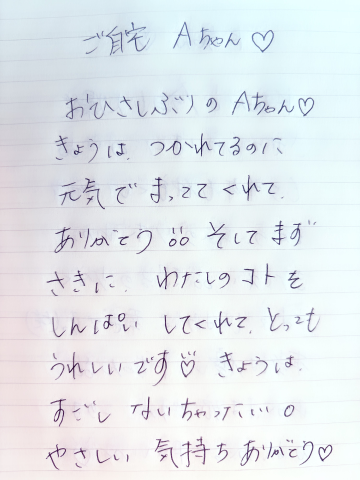 ご自宅 Aちゃん♡
おひさしぶりの Aちゃん♡
きょうは、つかれてるのに
元気で まっててくれて、
ありがとう そして まず
さきに、わたしのコトを
しんぱい してくれて、とっても
うれしいです♡ きょうは、
すごし ないちゃった
やさしい 気持ち ありがとう♡